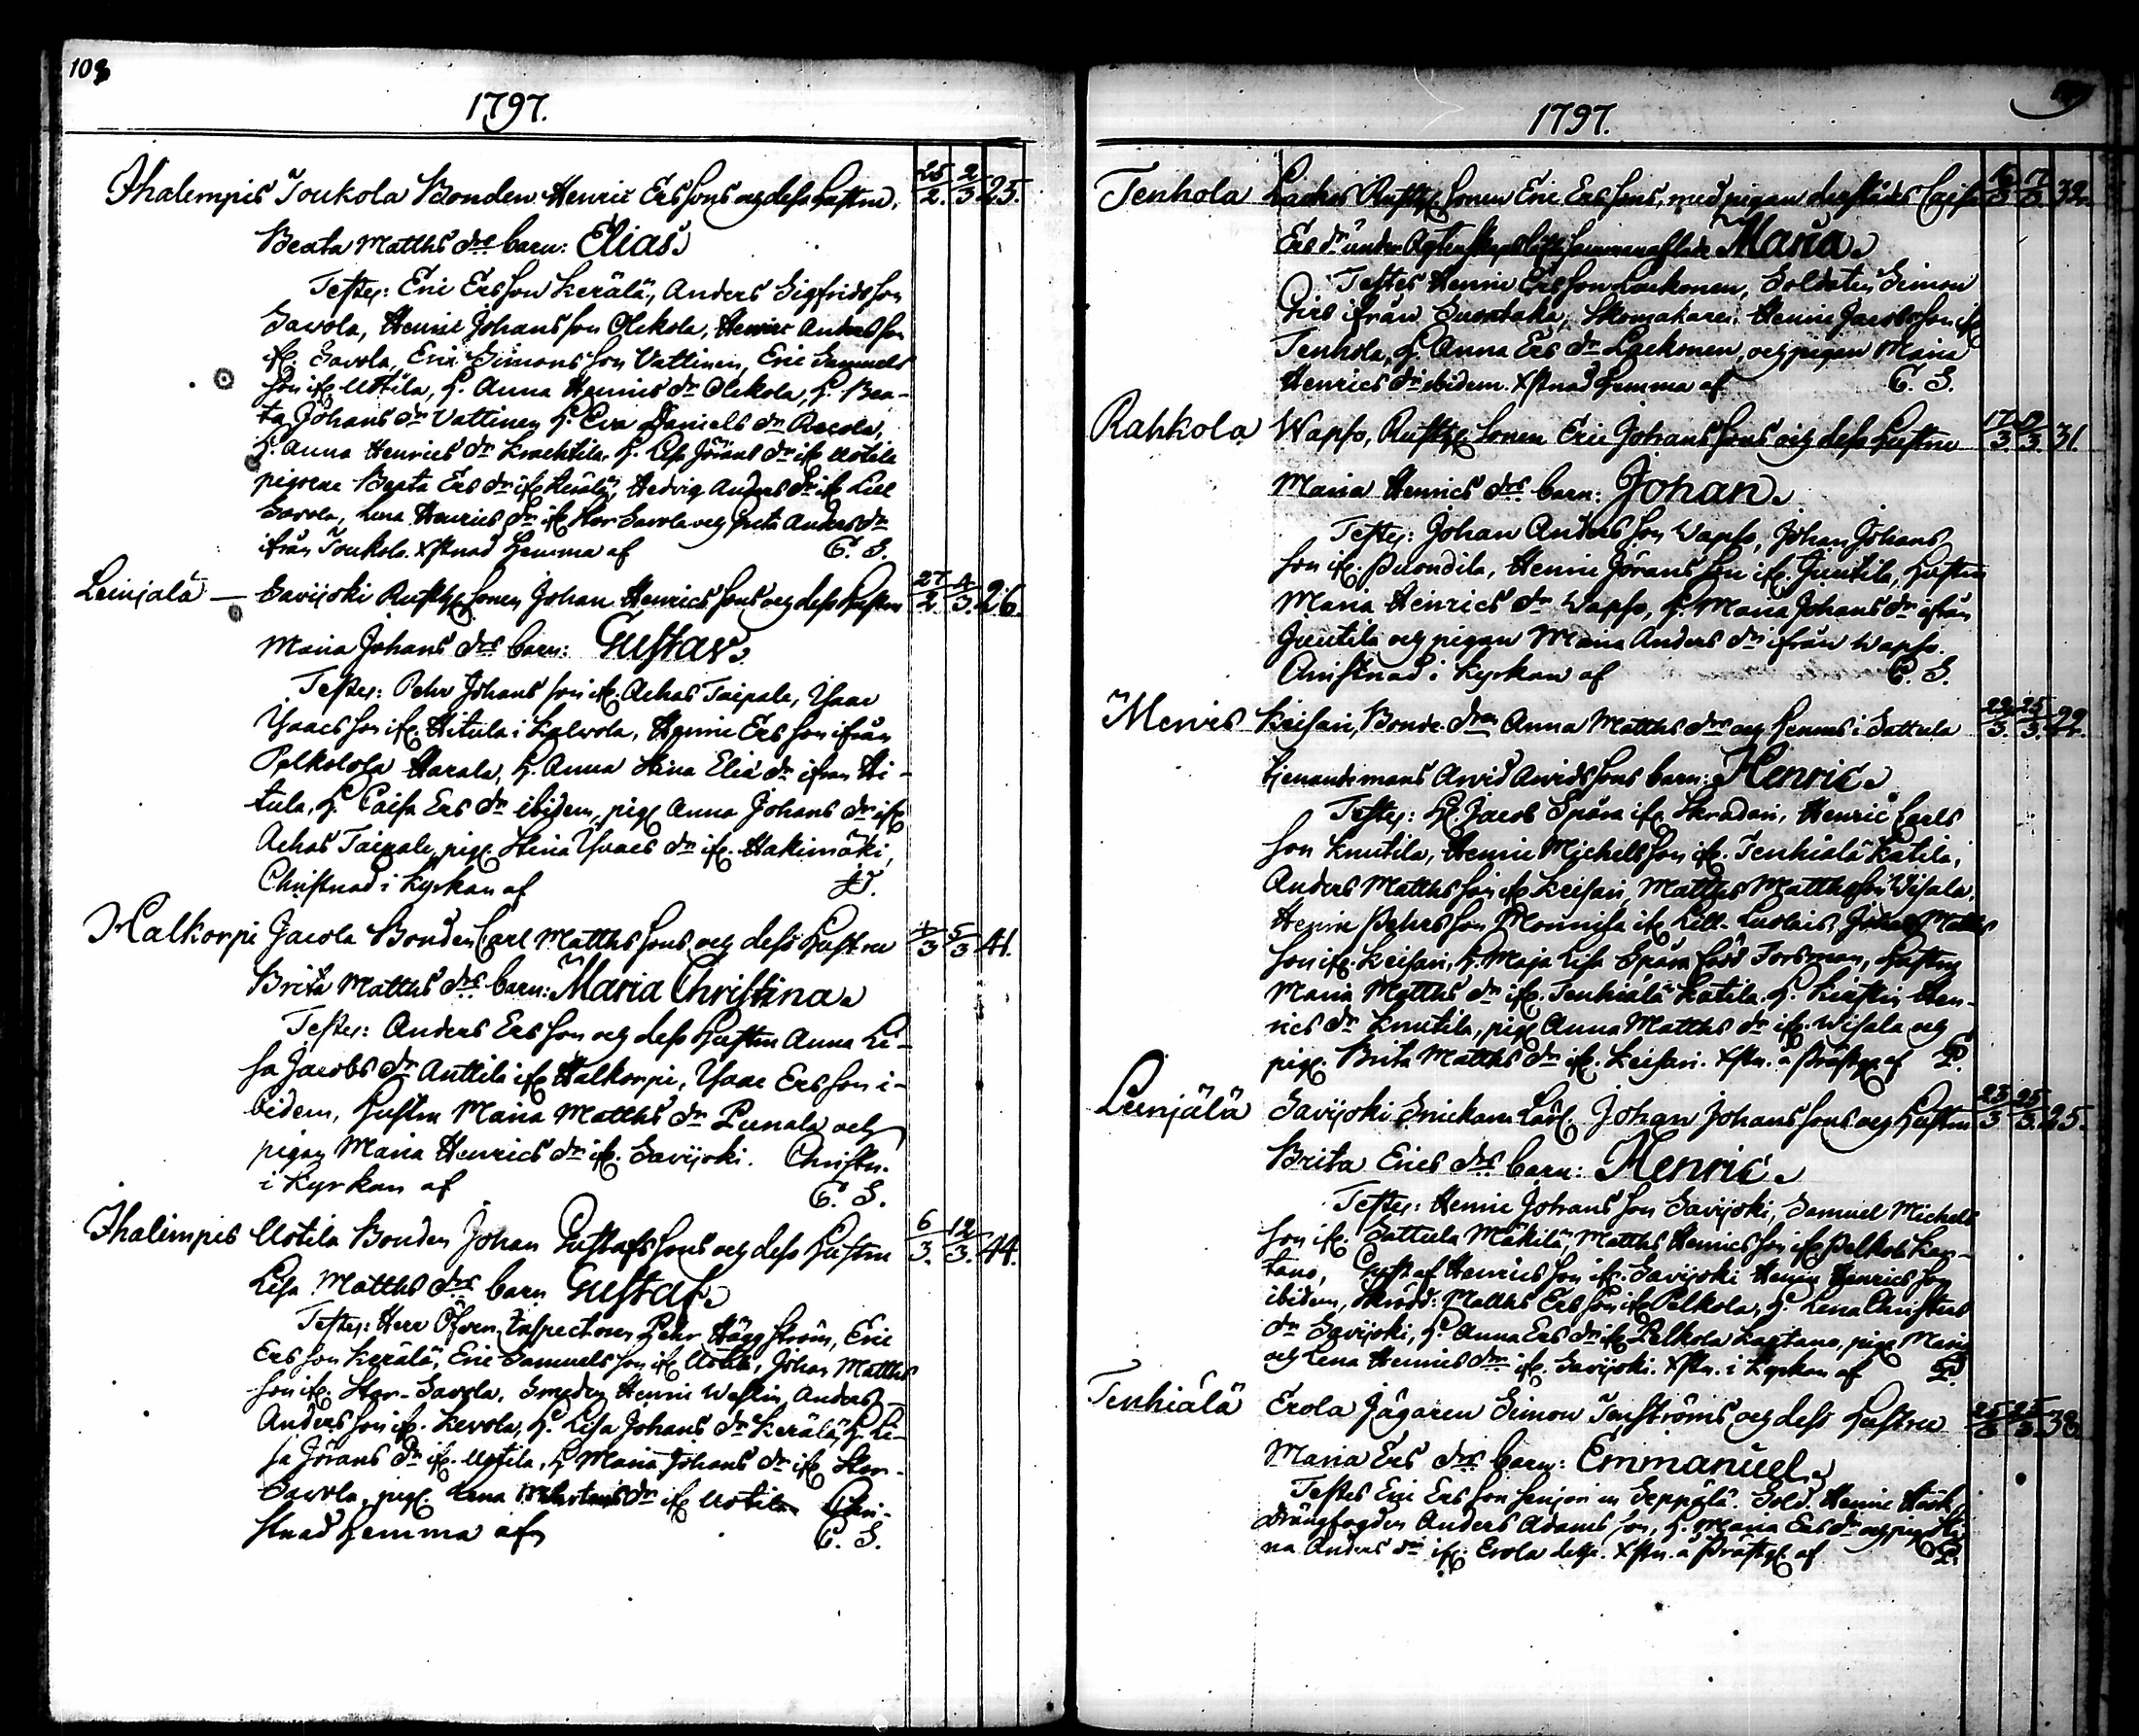 108
1797.
Ihalempis Toukola Bonden Henric Ers sons och dess hustru, 25/2. 2/3 25.
Beata Matths drs barn: Elias.
Testes: Eric Ersson Kerälä, Anders Sigfridsson
Savola, Henric Johansson Olekola, Henric Andersson
ifr. Savola, Eric Simonsson Vattinen, Eric Samuels
son ifr Uotila, h. Anna Henrics dr Olekola, h. Bea-
ta Johans dr Vattinen h. Eva Daniels dr
h. Anna Henrics dr h. Lisa Jörans dr ifr Uotila
pigorne Beata Ers dr ifr Kerälä, Hedvig Anders dr ifr Lill
Savola, Lena Henrics dr ifr Stor Savola och Greta Anders dr
ifrån Toukola. Xstnad hemma af C. S.
Leinjälä — Savijoki Rusth. sonen Johan Henrics sons och dess hustru 27/2. 4/3. 26.
Maria Johans drs barn: Gustav.
Testes: Pehr Johans son ifr. Achas Taipale, Isaac
Isaacsson ifr. Hitula i Kalvola, Henric Ers son ifrån
Harala, h. Anna Stina Eliæ dr ifrån Hi-
tula, h. Caisa Ers dr ibidem, pig. Anna Johans dr ifr
Achas Taipale, pig. Stina Isaacs dr ifr. Hakimäki,
Christnad i Kyrkan af
Halkorpi Jacola Bonden Carl Matths sons och dess hustru 4/3 5/3 41.
Brita Matths drs barn: Maria Christina.
Testes: Anders Ers son och dess hustru Anna Li-
sa Jacobs dr Anttila ifr Halkorpi, Isaac Ers son i-
bidem, hustru Maria Matths dr och
pigan Maria Henrics dr ifr. Savijoki. Christn.
i Kyrkan af C. S.
Ihalempis Uotila Bonden Johan Gustafs sons och dess hustru 6/3. 12/3. 44.
Lisa Matths drs barn Gustaf.
Testes: Herr Öfver Inspectoren Pehr Häggström, Eric
Ers son Kerälä, Eric Samuels son ifr Uotila, Johan Matths
son ifr. Stor-Savola, Smeden Henric Westlin, Anders
Anders son ifr. Kevola, h. Lisa Johans dr Kerälä, h. Li-
sa Jörans dr ifr. Uotila, h Maria Johans dr ifr Stor-
Savola, pig. Lena dr ifr Uotila Chri-
stnad hemma af C. S.
1797.
Tenhola Rusth. sonen Eric Ers sons, med pigan derstädes Caisa 17/3. 32.
Ers dr under Maria.
Testes Henric Ersson Lackonen, Soldaten Simon
ifrån Suontaka, Skomakaren Henric Jacobsson ifr
Tenhola, h. Anna Ers dr Lackonen, och pigan Maria
Henrics dr ibidem. Xstnad hemma af C. S.
Rahkola Wapso, Rusth. sonen Eric Johans sons och dess hustru 17/3. 19/3. 31.
Maria Henrics drs barn: Johan.
Testes: Johan Andersson Wapso, Johan Johans
son ifr. Henric Jörans son ifr. Juutila, hustru
Maria Henrics dr Wapso, h. Maria Johans dr ifrån
Juutila och pigan Maria Anders dr ifrån Wapso.
Christnad i Kyrkan af C. S.
Mervis Keisari, Bonde drn Anna Matths drs och hennes i Sattula 25/3. 22.
tjenande mans Arvid Arvids sons barn: Henric.
Testes: H. Jacob Spåra ifr. Henric Carls
son Knutila, Henric Michelsson ifr. Tenhiälä Katila,
Anders Matths son ifr Keisari, Matths Matthsson Wisala,
Henric Pehrsson ifr Lill- Johan Matths
son ifr. Keisari, h. Maja Lisa Spåra född Forsman, hustru
Maria Matths dr ifr. Tenhiälä Katila. h. Kirstin Hen-
rics dr Knutila, pig. Anna Matths dr ifr. Wisala och
pig. Brita Matths dr ifr. Keisari. Xstn. å Prästg. af
Leinjälä Savijoki Snickare Lärl. Johan Johans sons och hustru 23/3 25/3. 25.
Brita Erics drs barn: Henric.
Testes: Henric Johans son Savijoki, Samuel Michels
son ifr. Sattula Mäkilä, Matths Henrics son ifr Pelkola Kar-
tano, Gustaf Henrics son ifr. Savijoki Henric Henrics son
ibidem, Skrädd: Matths Ers son ifr Pelkola, h. Lena Christers
dr Savijoki, h. Anna Ers dr ifr Pelkola Kartano, pig. Maria
och Lena Henrics dr ifr. Savijoki. Xstn. i Kyrkan af
Tenhiälä Erola Jägaren Simon Tenströms och dess hustru 25/3 25/3. 38.
Maria Ers drs barn: Emmanuel.
Testes Eric Ers son junior in Seppälä. Sold. Henric Höök,
drängfogden Anders Adams son, h. Maria Ers dr och pig. Sti-
na Anders dr ifr. Erola Xstn. å Prästg. af